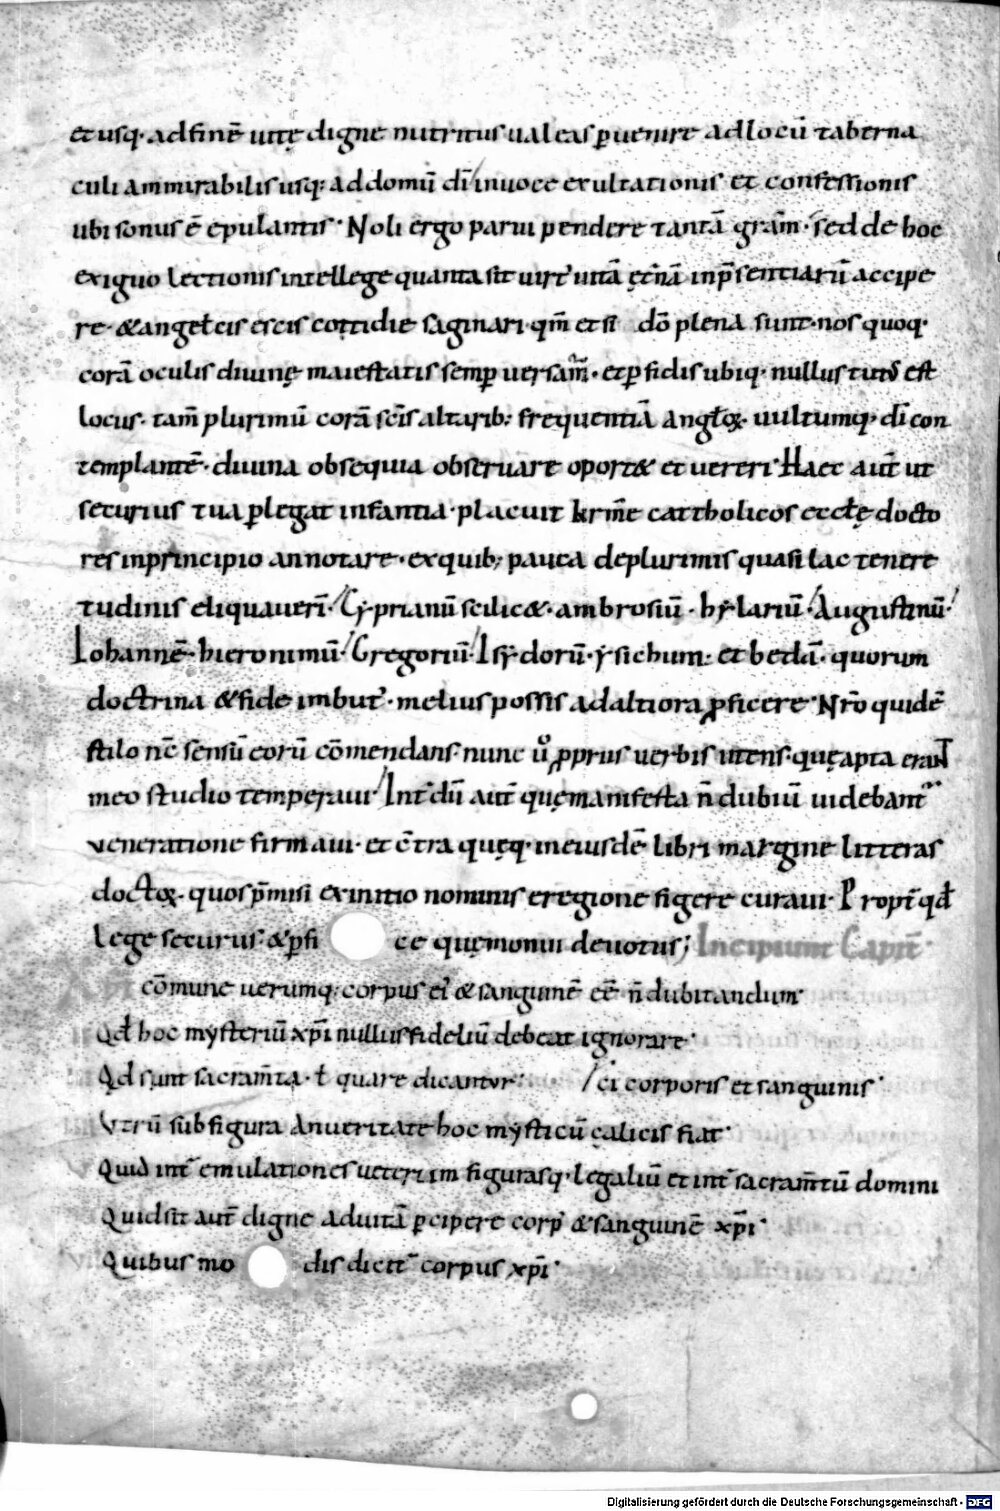 et usq· ad finē uitę digne nutritus ualeas ꝑuenire ad locū taberna
culi ammirabilis usq; ad domū dī in uoce exultationis et confessionis
ubi sonus ē epulantis· Noli ergo parui pendere tantā grām· sed de hoc
exiguo lectionis intellege quanta sit uirt᾽ uitā ęt̄nā inp̄sentiarū accipe
re· & angelicis escis cottidie saginari· qm̄ et si dō plena sunt· nos quoq·
corā oculis diuinę maiestatis semꝑ uersam̄· et ꝑfidis ubiq· nullus tutus est
locus· tam̄ plurimū corā scīs altarib; frequentiā angłoꝝ· uultumq· dī con
templantē· diuina obsequia obseruare oport& et uereri· Haec aut̄ ut
securius tua ꝑlegat infantia· placuit kr̄me cattholicos eccłę docto
res in principio annotare· ex quib; pauca de plurimis quasi lac tenere
tudinis eliquauerī· Cẏprianū scilic&· ambrosiū· hẏlariū· Augustinū·
Iohannē· hieronimū· Gregoriū· Isẏdorū· ẏsichum· et bedā· quorum
doctrina & fide imbut᾽· melius possis ad altiora ꝓficere· Nr̄o quidē
stilo nc̄ sensū eorū cōmendans· nunc ū ꝓpriis uerbis utens· quę apta eraNT
meo studio temperaui· Int᾽dū aut̄ quę manifesta n̄ dubiū uidebant᾽
veneratione firmaui· et c̄tra quęq· in eiusdē libri margine litteras
doctoꝝ· quos p̄misi ex initio nominis e regione figere curaui· Propt̄ qđ
lege securus· & ꝑfi ce quę monui deuotus; Incipiunt Capit̄·
Xp̄i cōmune uerumq; corpus ei᾽ & sanguinē eē n̄ dubitandum·
Qđ hoc mysteriū xp̄i nullus fideliū debeat ignorare·
Qđ sunt sacram̄ta· ł quare dicantur· / ci corporis et sanguinis·
Vtrū sub figura an ueritate hoc mẏsticū calicis fiat·
Quid int᾽ emulationes ueteri im figurasq· legaliū et int᾽ sacram̄tū domini
Quid sit aut̄ digne ad uitā ꝑcipere corp᾽ & sanguinē xp̄i·
Quibus mo dis dicit᾽ corpus xp̄i·
Digitalisierung gefördert durch die Deutsche Forschungsgemeinschaft - DFG